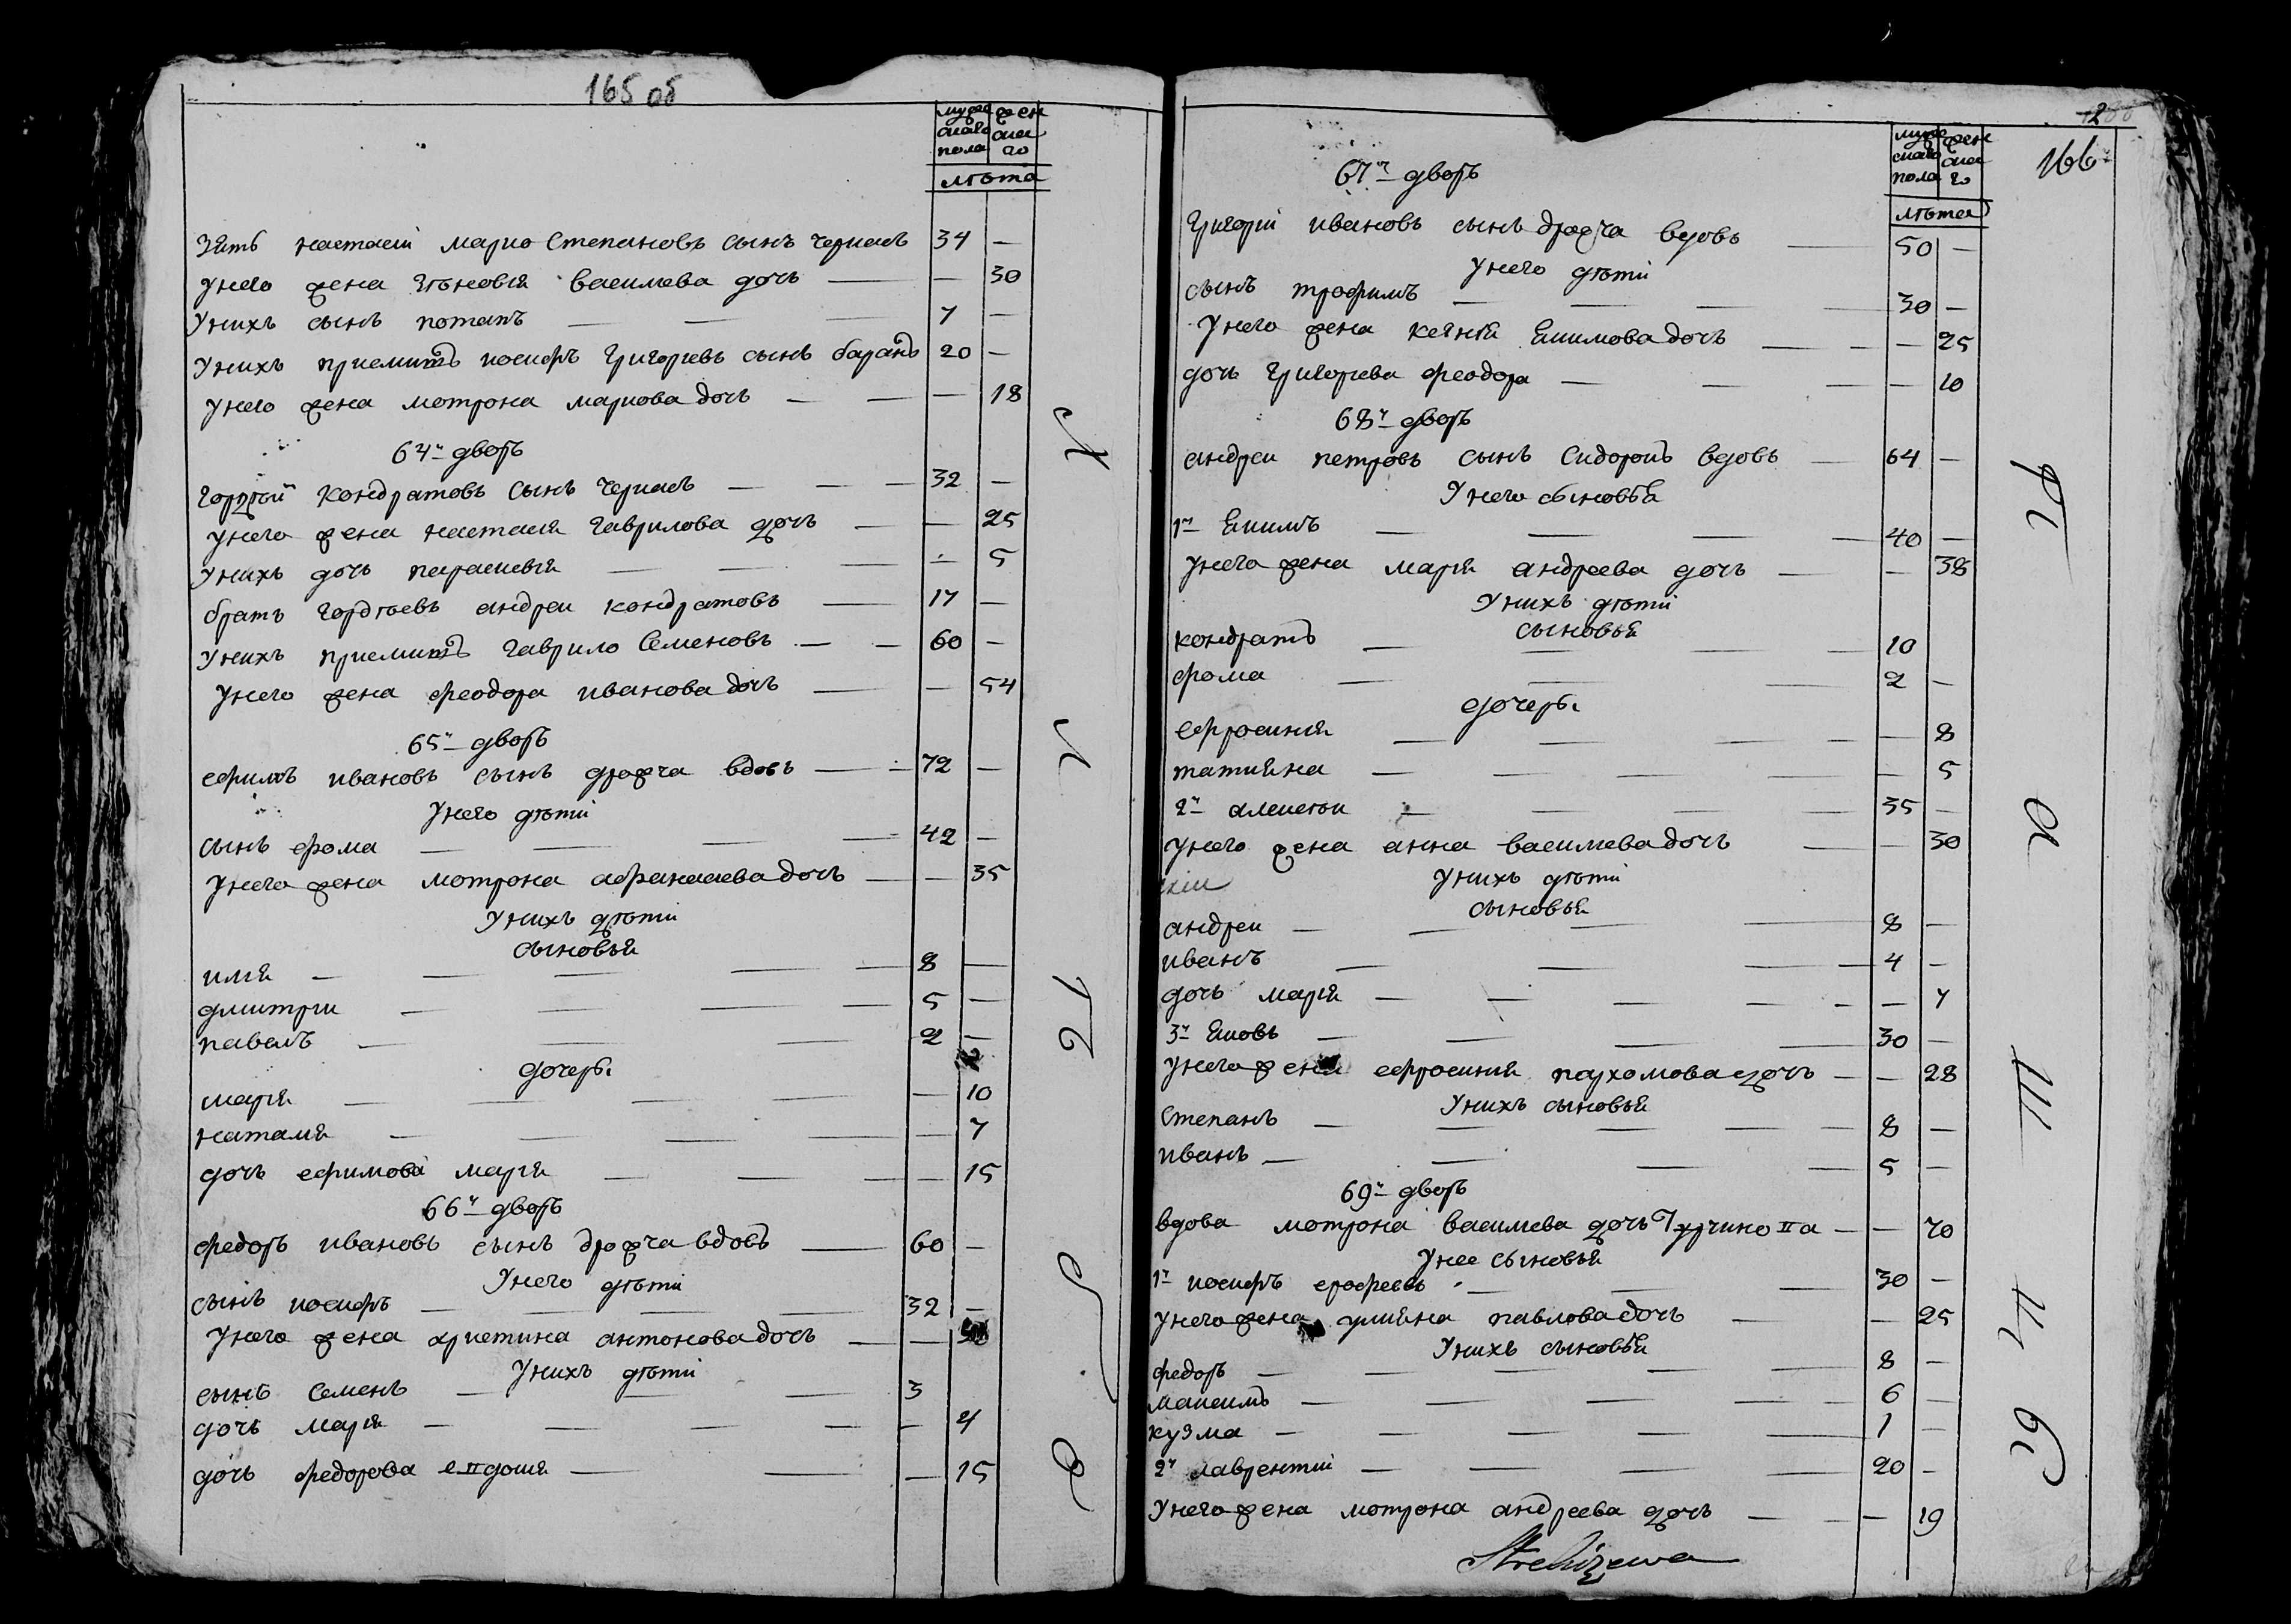 165 об
мужеска пола женска го
лѣта
Зять настасіи марко Степановъ сынъ Черкасъ 34 —
унего жена Зѣновія василева дочь — — 30
Унихъ сынъ потапъ — — — 7 —
Унихъ приемишъ иосифъ Григорьевъ сынъ баранъ 20 —
унего жена мотрона маркова дочь — — — 18
64й дворъ
Гордѣй кондратовъ сынъ Черкасъ — — — 32 —
унего жена настасия Гаврилова дочь — — 25
Унихъ дочь парасковия — — — — 5
братъ Гордѣевъ андреи кондратовъ — 17 —
Унихъ приемишъ Гаврило Семеновъ — — 60 —
унего жена феодора иванова дочь — — 54
65й дворъ
ефимъ ивановъ сынъ дрожча вдовъ — — 72 —
Унего дѣти
сынъ фома — — — — 42 —
унего жена мотрона афанасиева дочь — — 35
Унихъ дѣти
сыновья
илия — — — — — 8 —
дмитри — — — — 5 —
павелъ — — — 2 —
дочеры
мария — — — — — 10
наталия — — — — — 7
дочь ефимова мария — — — — 15
66й дворъ
федоръ ивановъ сынъ дрожча вдовъ — 60 —
Унего дѣти
сынъ иосифъ — — — — 32 —
Унего жена христина антонова дочь — —
Унихъ дѣти
сынъ Семенъ — — — 3
дочь мария — — — — — 4
дочь федорова евдокия — — — 15
166
67й дворъ
мужеска пола женска го
лѣта
Григорій ивановъ сынъ дрожча вдовъ — 50 —
Унего дѣти
сынъ трофимъ — — — — 30 —
Унего жена ксения Екимова дочь — — — 25
дочь Григорева феодора — — — — 10
68й дворъ
андреи петровъ сынъ Сидорокъ вдовъ — 64 —
Унего сыновья
1й Екимъ — — — — 40 —
унего жена мария андреева дочь — — 38
Унихъ дѣти
сыновья
кондратъ — — — — 10
фома — — — 2 —
дочеры
ефросиния — — — — — 8
татияна — — — — — 5
2й алексѣи — — — — 35 —
унего жена анна василева дочь — — 30
Унихъ дѣти
сыновья
андреи — — — — 8 —
иванъ — — — 4 —
дочь мария — — — — — — 7
3й Яковъ — — — — 30 —
унего жена ефросиния пахомова дочь — — 28
Унихъ сыновья
Степанъ — — — — — 8 —
иванъ — — — — 5 —
69й дворъ
вдова мотрона василева дочь — — 70
Унее сыновья
1й иосифъ ерофеевъ — — — 30 —
унего жена улияна павлова дочь — — 25
Унихъ сыновья
федоръ — — — — — 8 —
максимъ — — — — — 6 —
кузма — — — — — 1 —
2й лаврентии — — — — 20 —
Унего жена мотрона андреева дочь — — — 19